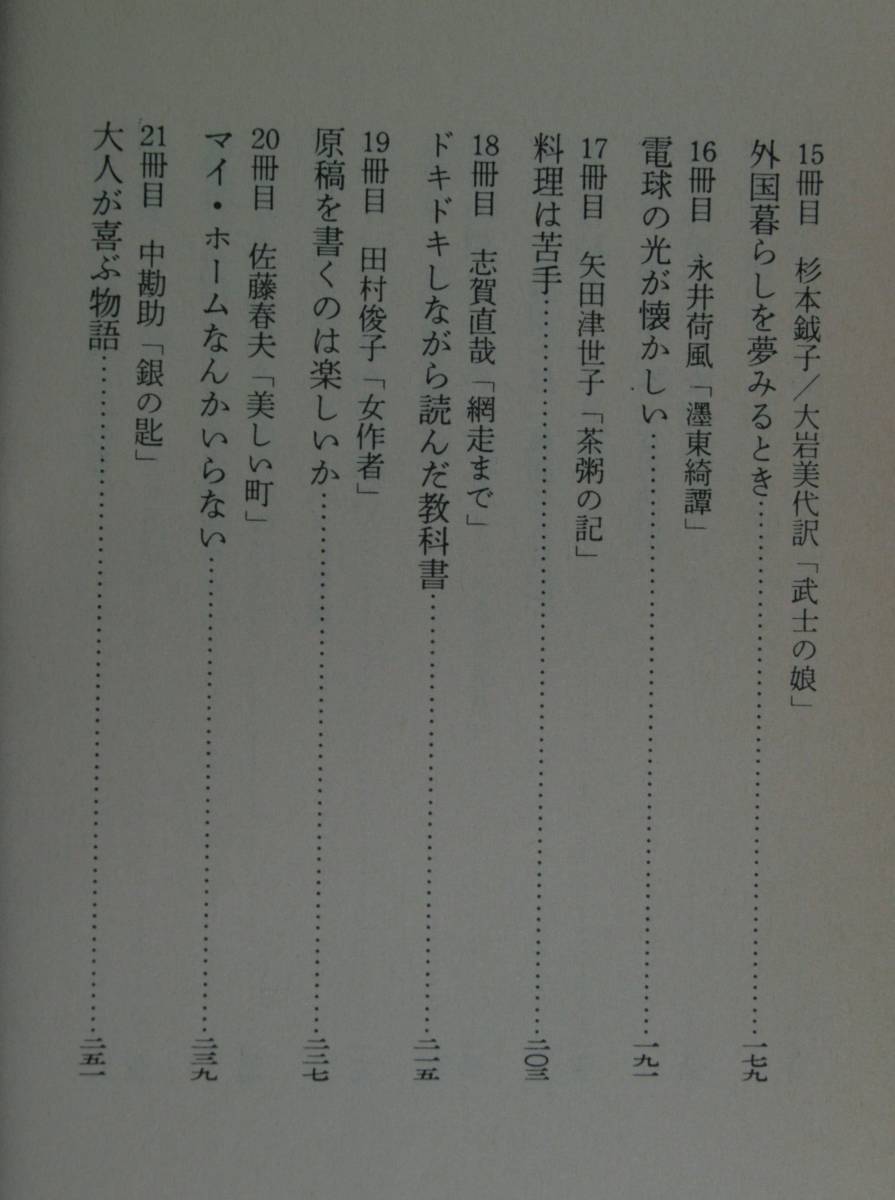 15冊目　杉本鉞子／大岩美代訳「武士の娘」
外国暮らしを夢みるとき…………一七九
16冊目　永井荷風「濹東綺譚」
電球の光が懐かしい…………一九一
17冊目　矢田津世子「茶粥の記」
料理は苦手…………二〇三
18冊目　志賀直哉「網走まで」
ドキドキしながら読んだ教科書…………二一五
19冊目　田村俊子「女作者」
原稿を書くのは楽しいか…………二二七
20冊目　佐藤春夫「美しい町」
マイ・ホームなんかいらない…………二三九
21冊目　中勘助「銀の匙」
大人が喜ぶ物語…………二五一